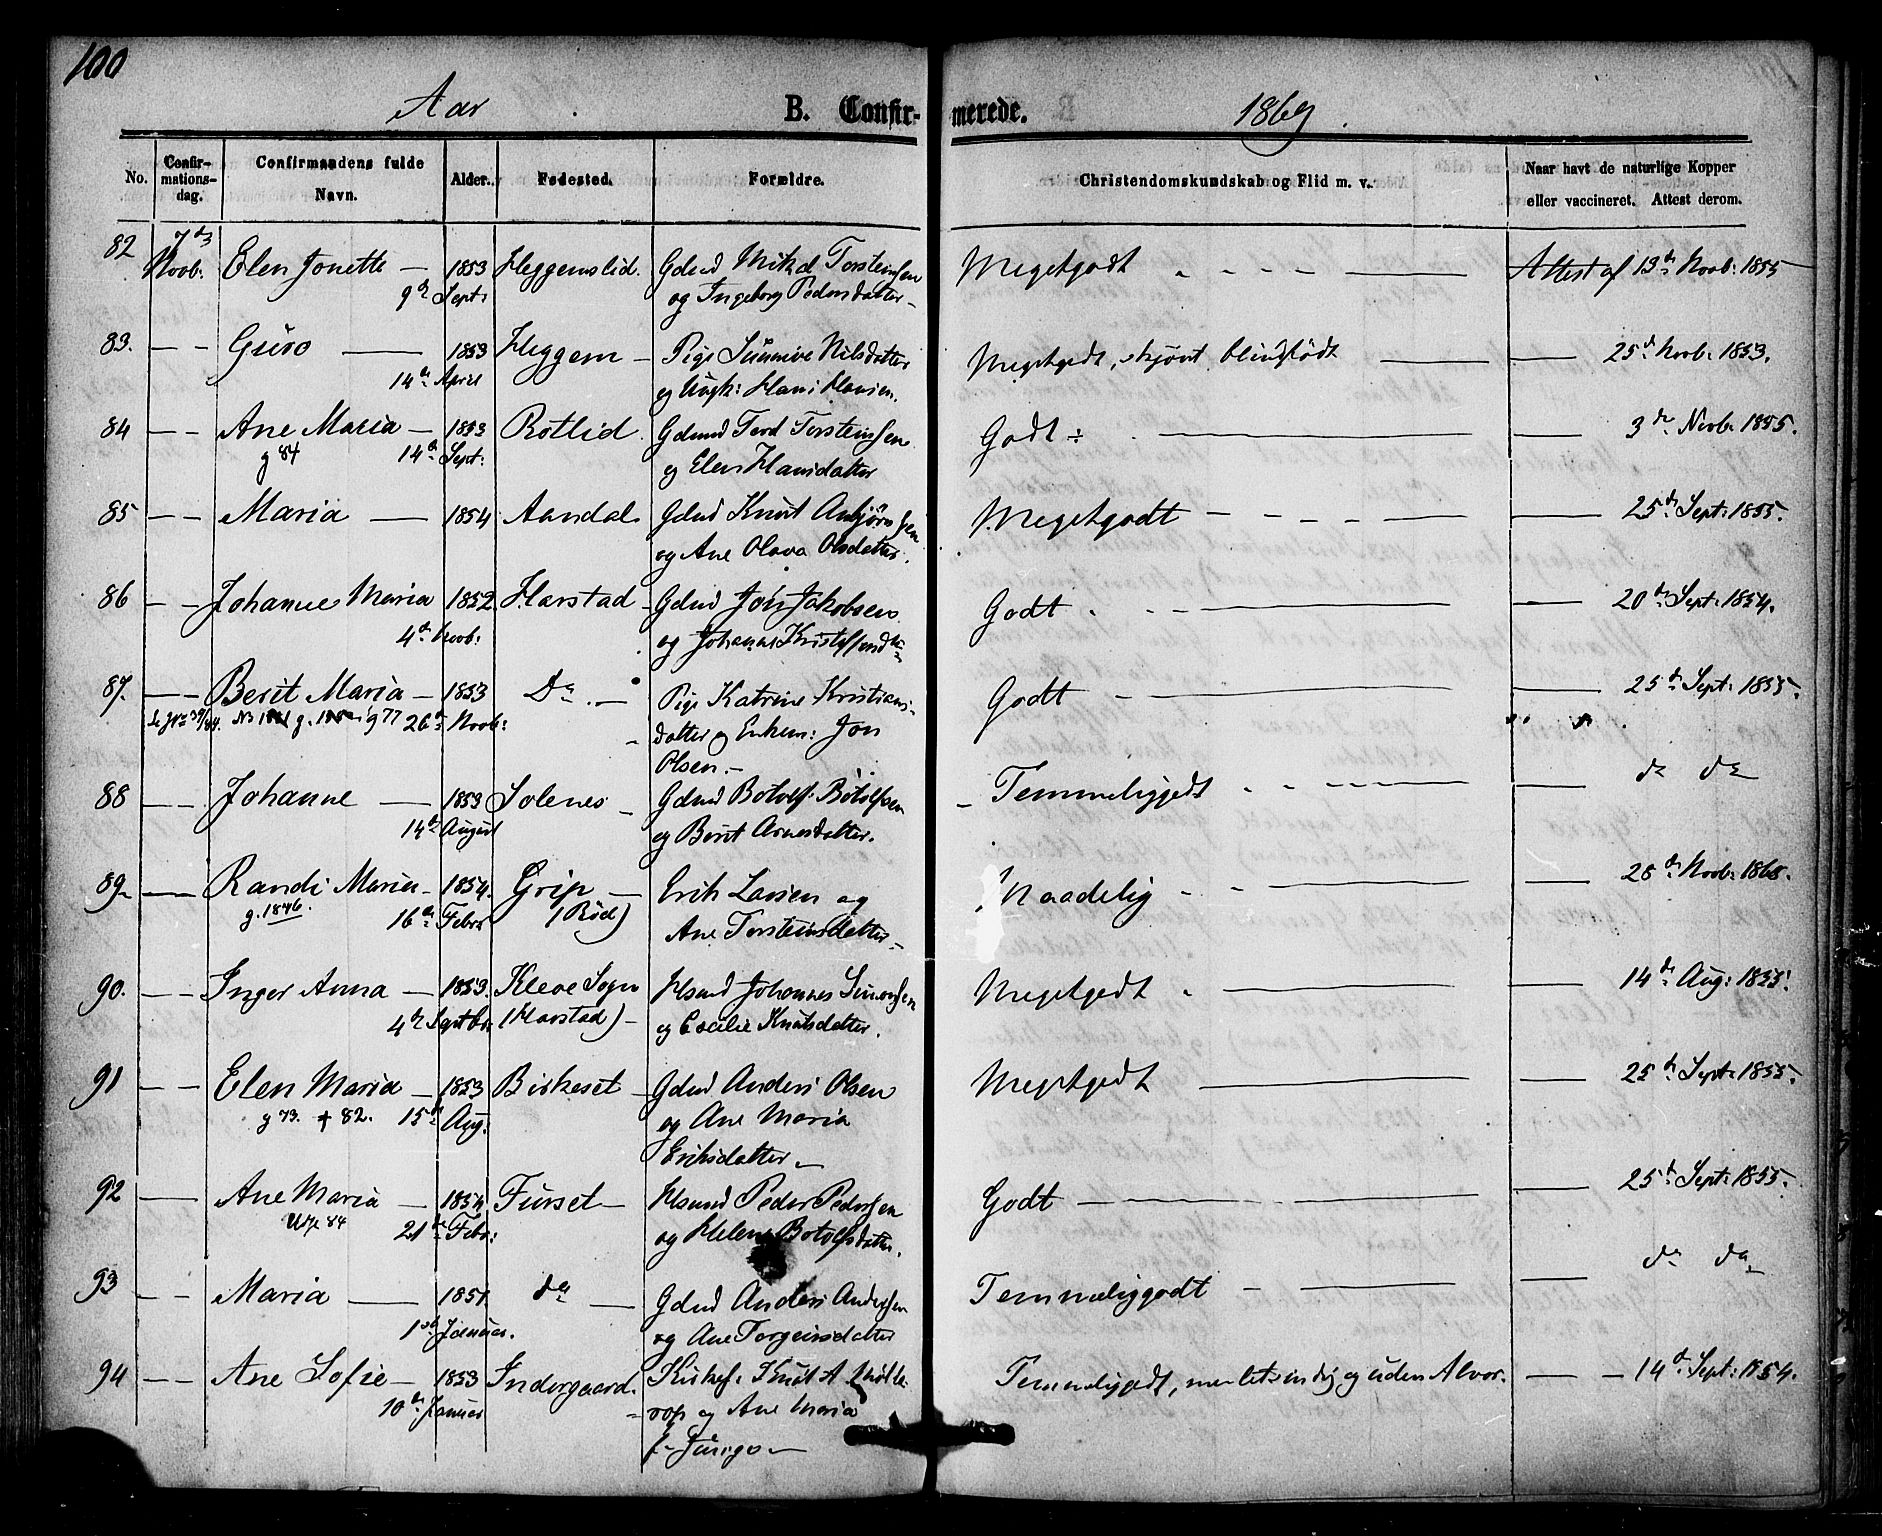 100
Aar B. Confirmerede. 1869.
No. Confirmationsdag. Confirmandens fulde Navn. Alder. Fødested. Forældre. Christendomskundskab og Flid m. v. Naar havt de naturlige Kopper eller vaccineret. Attest derom.
82 7de Novb: Elen Jonette — 1853 Heggemslid. Gdmd Torsteinsen Megetgodt Attest af 13de Novb: 1855
9de Sept: og Ingeborg Pedersdatter
83. — — Guro — 1853 Heggem — Pige Sunnive Nilsdatter Megetgodt, skjønt blindfødt — 25de Novb: 1853.
14de April og Ungk: Hans Hansen.
84 — — Ane Maria — 1853 Rotlid. Gdmd Tord Torsteinsen Godt ÷ — 3de Novb. 1855.
g 84 14de Sept: og Elen Hansdatter
85 — — Maria — 1854 Aandal Gdmd Knut Anbjørnsen Megetgodt — 25de Sept: 1855.
og Ane Olava Olsdatter.
86 — — Johanne Maria 1852 Harstad — Gdmd Jon Jakobsen Godt — 20de Sept: 1854.
4de Novb: og Johanne Kristoffersdtr
87. — — Berit Maria — 1853 Do. — Pige Katrine Kristians- Godt — 25de Sept: 1855.
g 77 26de Novb: datter og Enkem: Jon
Olsen. —
88 — — Johanne — 1853 Solenes — Gdmd Botolf Botolfsen Temmeliggodt — do do
14de August og Berit Arnesdatter.
89 — Randi Maria — 1854. Grip — Erik Larsen og Maadelig — 28de Novb: 1868.
g. 1846. 16de Febr (Rød) Ane Torsteinsdatter —
90. — — Inger Anna — 1853. Kleve Sogn Hsmd Johannes Simonsen Megetgodt — 14de Aug: 1855.
4de Septbr. (Harstad) — og Cecilie Knutsdatter.
91 — — Elen Maria — 1853 Birkeset — Gdmd Anders Olsen Megetgodt — 25de Sept: 1855.
g 73. + 82. 15de Aug: og Ane Maria
Eriksdatter —
92 — Ane Maria — 1854 Furset — Hsmd Peder Pedersen Godt — 25de Sept: 1855.
Udfl 84 21de Febr: og Helene Botolfsdatter.
93 — — Maria — 1851 do — Gdmd Anders Andersen Temmeliggodt — do do
1ste Januar. og Ane Torgeirsdatter
94 — — Ane Sofie — 1853 Indergaard. Kirkes. Knut A Temmeliggodt, men letsindig og uden Alvor. — 14de Sept: 1854.
10de Januar og Ane Maria
f.